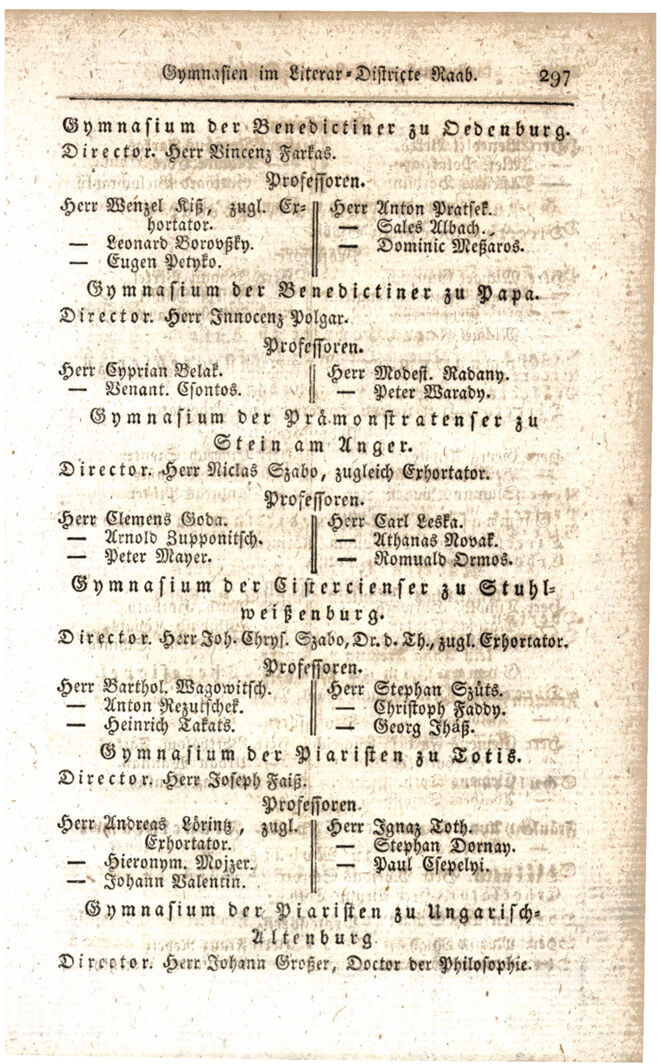 Gymnasien im Literar-Districte Raab. 297
Gymnasium der Benedictiner zu Oedenburg.
Director. Herr Vincenz Farkas.
Professoren.
Herr Wenzel Kiß, zugl. Ex-
hortator.
— Leonard Borovßky.
— Eugen Petyko.
Herr Anton Pratsek.
— Sales Albach.
— Dominic Meßaros.
Gymnasium der Benedictiner zu Papa.
Director. Herr Innocenz Polgar.
Professoren.
Herr Cyprian Belak.
— Venant. Csontos.
Herr Modest. Radany.
— Peter Warady.
Gymnasium der Prämonstratenser zu
Stein am Anger.
Director. Herr Niclas Szabo, zugleich Exhortator.
Professoren.
Herr Clemens Goda.
— Arnold Zupponitsch.
— Peter Mayer.
Herr Carl Leska.
— Athanas Novak.
— Romuald Ormos.
Gymnasium der Cistercienser zu Stuhl-
weißenburg.
Director. Herr Joh. Chrys. Szabo, Dr. d. Th., zugl. Exhortator.
Professoren.
Herr Barthol. Wagowitsch.
— Anton Rezutschek.
— Heinrich Takats.
Herr Stephan Szüts.
— Christoph Faddy.
— Georg Ihäß.
Gymnasium der Piaristen zu Totis.
Director. Herr Joseph Faiß.
Professoren.
Herr Andreas Lörintz, zugl.
Exhortator.
— Hieronym. Mojzer.
— Johann Valentin.
Herr Ignaz Toth.
— Stephan Dornay.
— Paul Csepelyi.
Gymnasium der Piaristen zu Ungarisch-
Altenburg.
Director. Herr Johann Großer, Doctor der Philosophie.